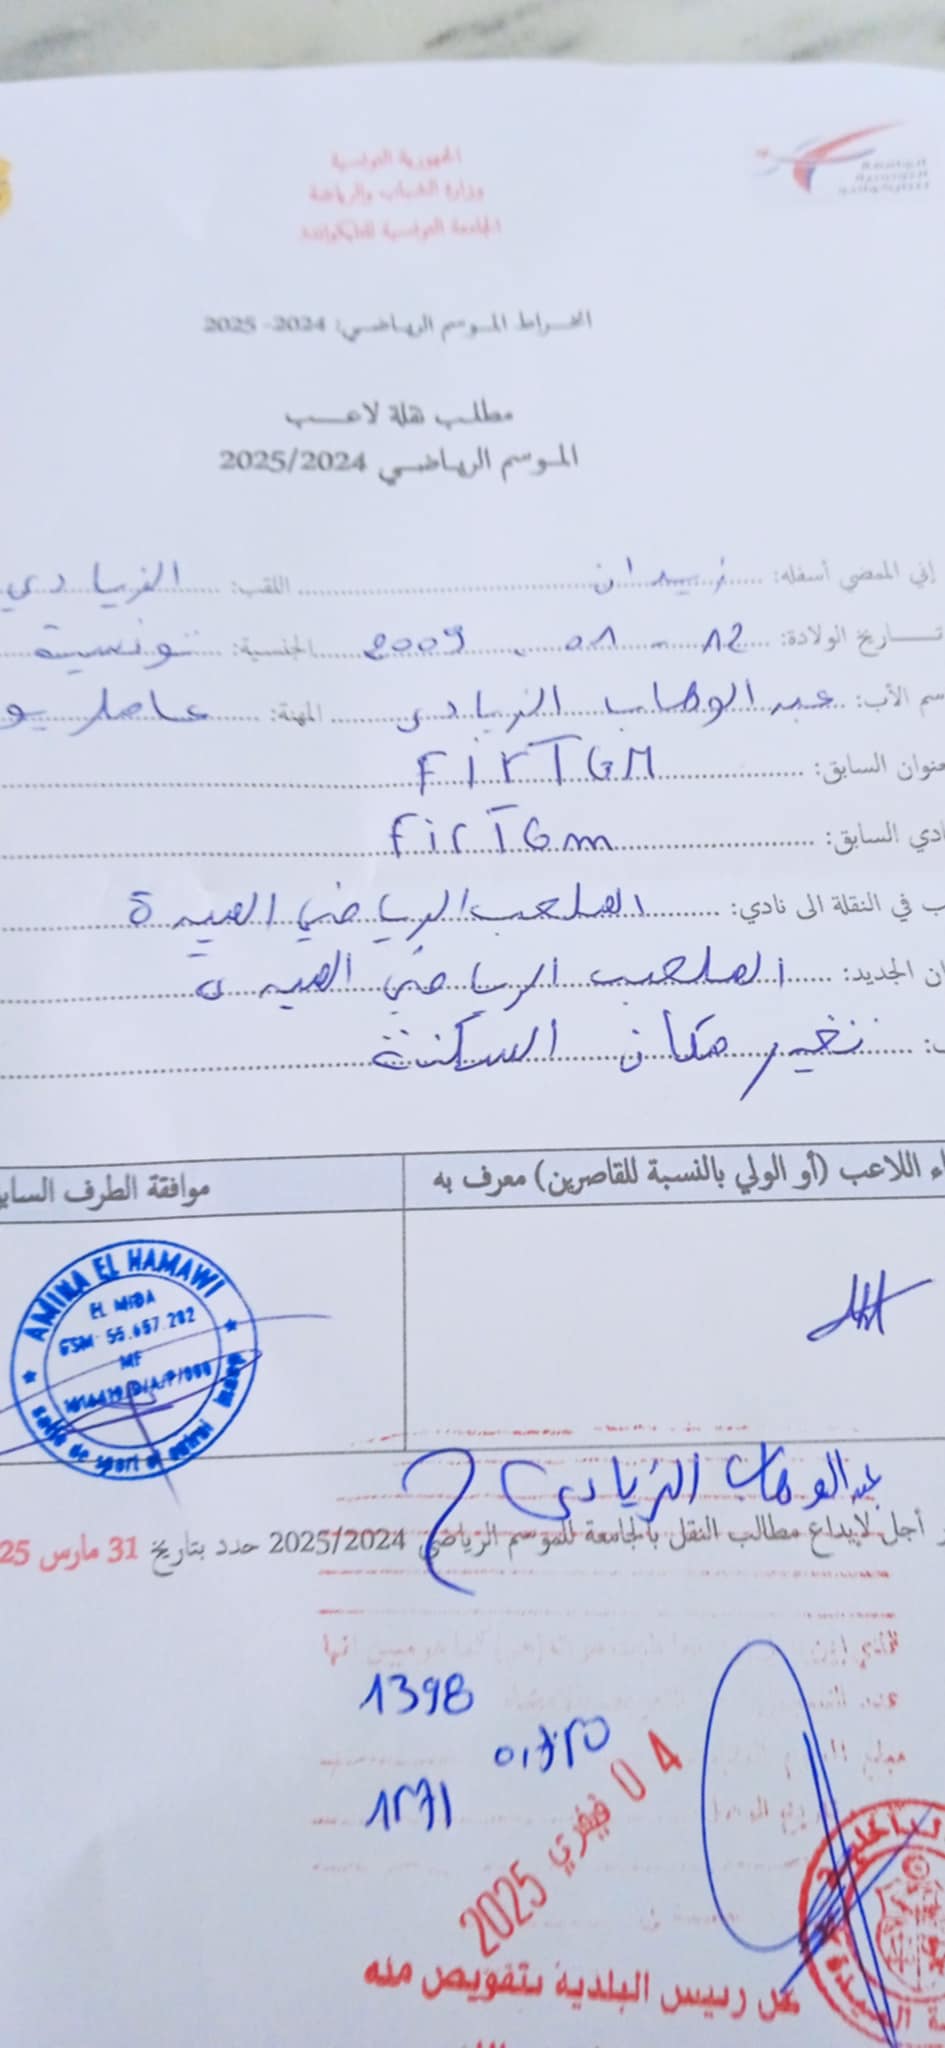 الجمهورية التونسية
وزارة الشباب والرياضة
الجامعة التونسية للتايكواندو
انخراط الموسم الرياضي: 2024- 2025
مطلب نقلة لاعب
الموسم الرياضي 2025/2024
إني الممضي أسفله: زيدان اللقب: الزيادي
تاريخ الولادة: 12 - 01 - 2009 الجنسية: تونسية
سم الأب: عبد الوهاب الزيادي المهنة: عامل يو
عنوان السابق: FirTGM
ادي السابق: FirTGm
ب في النقلة الى نادي: الملعب الرياضي الميدة
ان الجديد: الملعب الرياضي الميدة
ب: تغير مكان السكنة
اء اللاعب (أو الولي بالنسبة للقاصرين) معرف به
موافقة الطرف الساب
AMINA EL HAMAWI
EL MIDA
GSM: 55.657.282
MF
salle de sport et
عبد الوهاب الزيادي
ر أجل لايداع مطالب النقل بالجامعة للموسم الرياضي 2025/2024 حدد بتاريخ 31 مارس 25
1398
0,750
1571
04 فيفري 2025
عن رئيس البلدية بتفويض منه